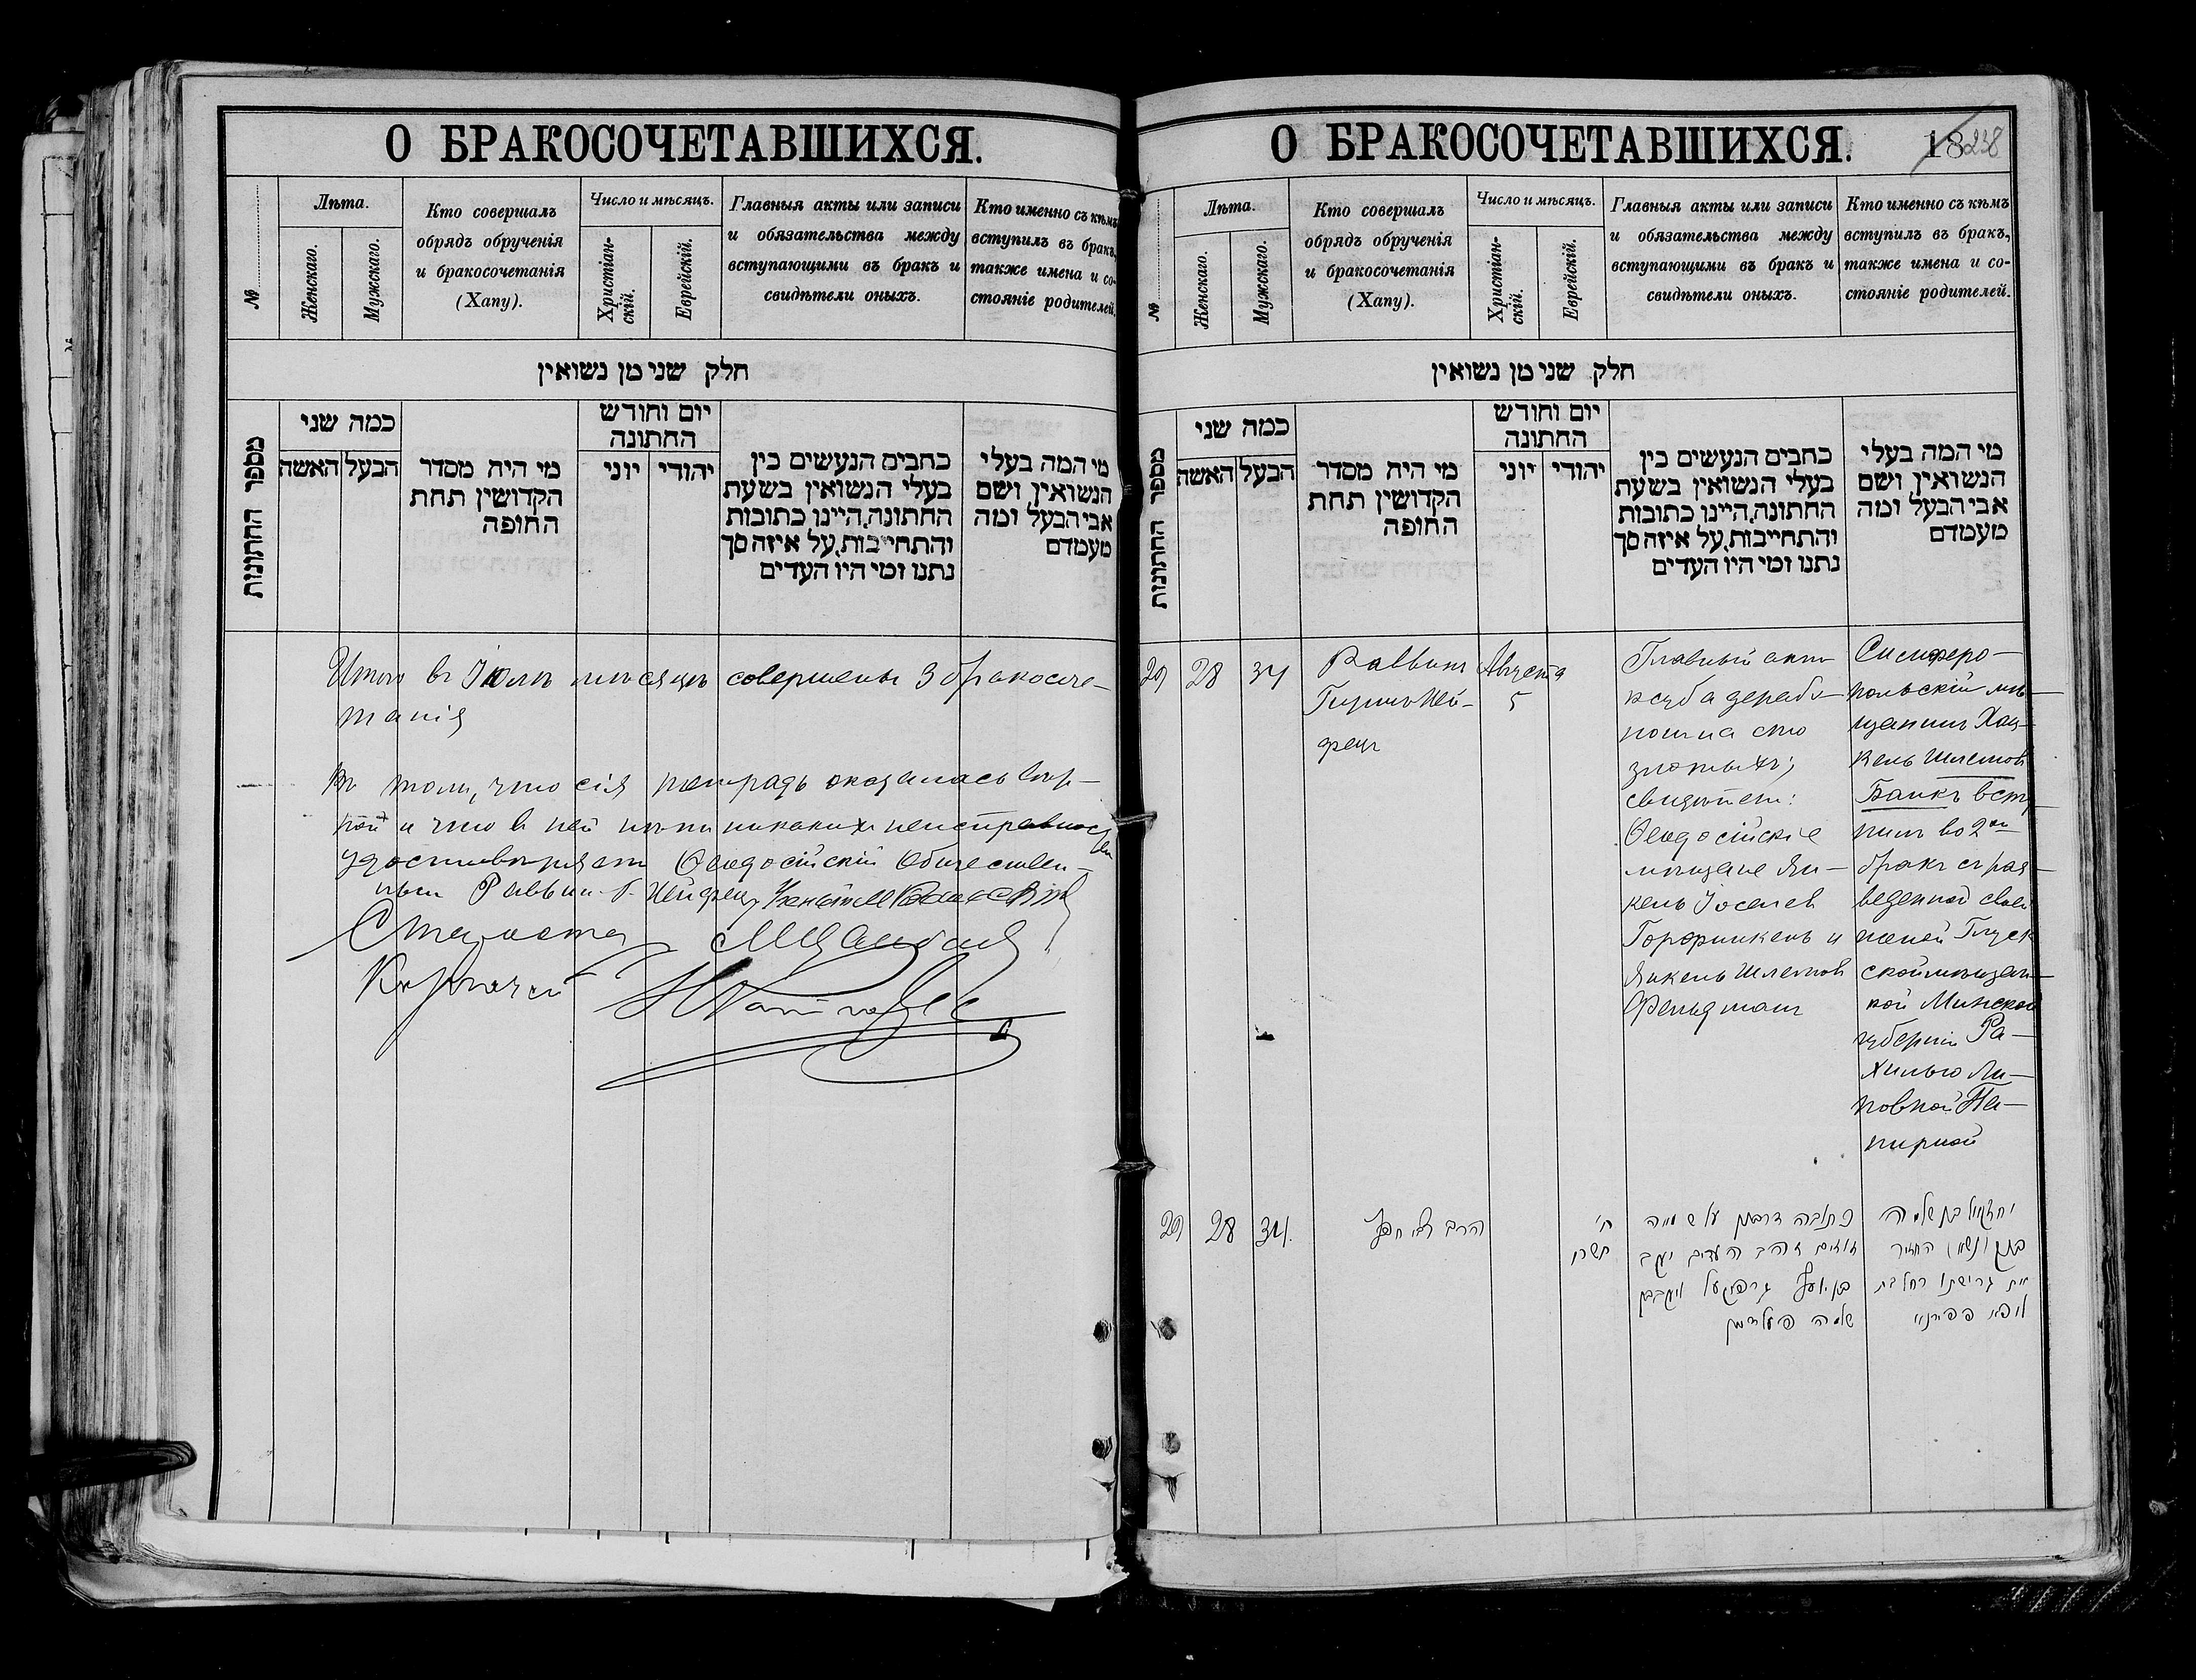 О БРАКОСОЧЕТАВШИХСЯ.
№
Лѣта.
Женскаго.
Мужскаго.
Кто совершалъ
обрядъ обрученія
и бракосочетанія
(Хапу).
Число и мѣсяцъ.
Христіан-
скій.
Еврейскій.
Главныя акты или записи
и обязательства между
вступающими въ бракъ и
свидѣтели оныхъ.
Кто именно съ кѣмъ
вступилъ въ бракъ,
также имена и со-
стояніе родителей.
חלק שני מן נשואין
מספר החתונות
כמה שני
הבעל האשה
מי היה מסדר
הקדושין תחת
החופה
יום וחודש
החתונה
יהודי יוני
כתבים הנעשים בין
בעלי הנשואין בשעת
החתונה, היינו כתובות
והתחייבות, על איזה סך
נתנו ומי היו העדים
מי המה בעלי
הנשואין ושם
אבי הבעל ומה
מעמדם
Итого въ Іюлѣ мѣсяцѣ совершены 3 бракосоче-
танія
Въ томъ, что сія тетрадь оказалась вѣр-
ной и что въ ней нѣтъ никакихъ неисправностей
удостовѣряетъ Ѳеодосійскій Обществен-
ный Раввинъ Г. Нейфецъ
Староста
О БРАКОСОЧЕТАВШИХСЯ.
18
238
№
Лѣта.
Женскаго.
Мужскаго.
Кто совершалъ
обрядъ обрученія
и бракосочетанія
(Хапу).
Число и мѣсяцъ.
Христіан-
скій.
Еврейскій.
Главныя акты или записи
и обязательства между
вступающими въ бракъ и
свидѣтели оныхъ.
Кто именно съ кѣмъ
вступилъ въ бракъ,
также имена и со-
стояніе родителей.
חלק שני מן נשואין
מספר החתונות
כמה שני
הבעל האשה
מי היה מסדר
הקדושין תחת
החופה
יום וחודש
החתונה
יהודי יוני
כתבים הנעשים בין
בעלי הנשואין בשעת
החתונה, היינו כתובות
והתחייבות, על איזה סך
נתנו ומי היו העדים
מי המה בעלי
הנשואין ושם
אבי הבעל ומה
מעמדם
29 28 34
Раввинъ
Гиршъ Ней-
фецъ
Августа
5
Главный актъ
ксуба дераба-
нонъ на сто
злотыхъ;
свидѣтели:
Ѳеодосійскіе
мѣщане Ян-
кель Іоселев
Горфинкель и
Янкель Шлемов
Фельдманъ
Симферо-
польскій мѣ-
щанинъ Хац-
кель Шлемов
Банкъ всту-
пилъ во 2ой
бракъ съ раз-
веденной своей
женой Глуск
ской мѣщан-
кой Минской
губерніи Ра-
хилью Ли-
повной Па-
пирной
29 28 34.
הרב
ח'
תשרי
כתובה דרבנן על ש מאה
זוזים זהב העדים יעקב
בן יוסף גרפינקעל ויעקב בן
שלמה פעלדמן
יחזקאל בן שלמה
בנק ונשא החזיר
את גרושתו רחל בת
ליפא פפירנא